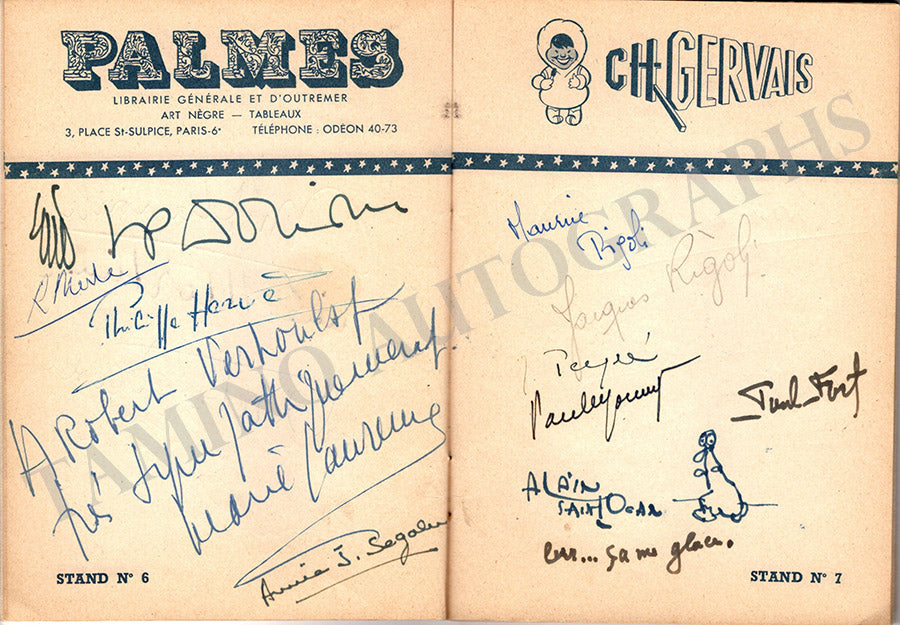 PALMES
LIBRAIRIE GÉNÉRALE ET D'OUTREMER
ART NÈGRE — TABLEAUX
3, PLACE St-SULPICE, PARIS-6e TÉLÉPHONE : ODÉON 40-73
Philippe Hervé
A Robert Verhoulst
très sympathiquement
Marie Laurence
Annie J. Segalen
STAND No 6
CH. GERVAIS
Maurice
Rigoli
Jacques Rigoli
Paul Fort
ALAIN
SAINT OGAN
brr... ça me glace.
STAND No 7
TAMINO AUTOGRAPHS